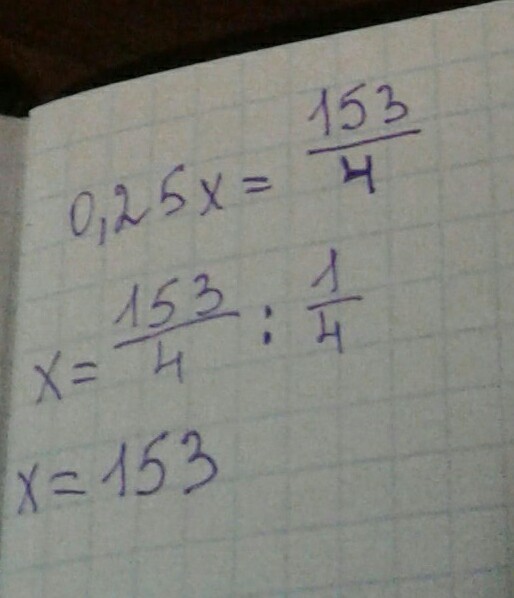 0,25x = 153/4
x = 153/4 : 1/4
x = 153